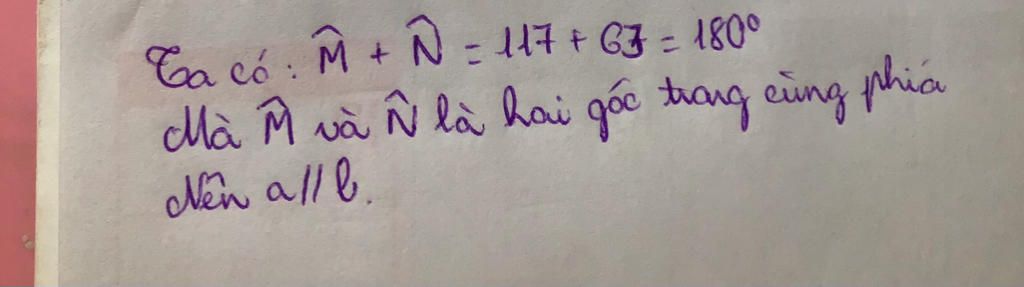 Ta có: M̂ + N̂ = 117 + 63 = 180°
Mà M̂ và N̂ là hai góc trong cùng phía
Nên a//b.